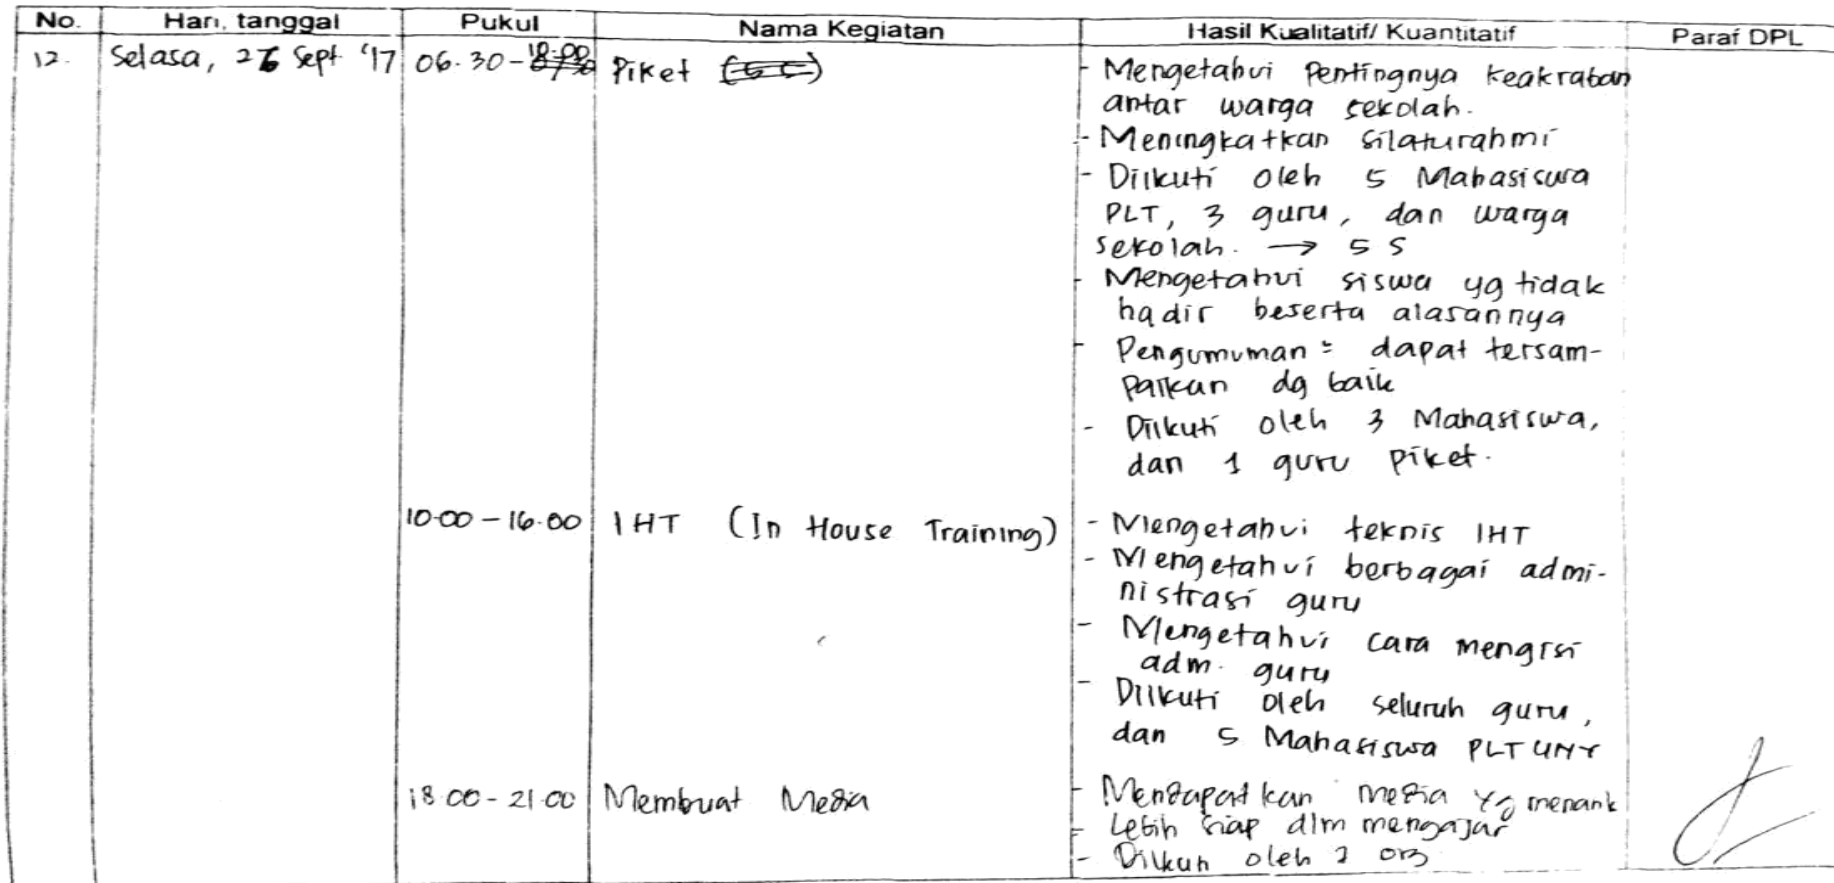 No. Hari, tanggal Pukul Nama Kegiatan Hasil Kualitatif/ Kuantitatif Paraf DPL
12. Selasa, 26 Sept '17 06.30 - Piket
- Mengetahui Pentingnya keakraban
antar warga sekolah.
- Meningkatkan silaturahmi
- Diikuti oleh 5 Mahasiswa
PLT, 3 guru, dan warga
sekolah. → 5 S
- Mengetahui siswa yg tidak
hadir beserta alasannya
- Pengumuman = dapat tersam-
paikan dg baik
- Diikuti oleh 3 Mahasiswa,
dan 1 guru piket.
10.00 - 16.00 IHT (In House Training) - Mengetahui teknis IHT
- Mengetahui berbagai admi-
nistrasi guru
- Mengetahui cara mengisi
adm. guru
- Diikuti oleh seluruh guru,
dan 5 Mahasiswa PLT UNY
18.00 - 21.00 Membuat Media - Mendapatkan media yg menarik
- Lebih siap dlm mengajar
- Diikuti oleh org